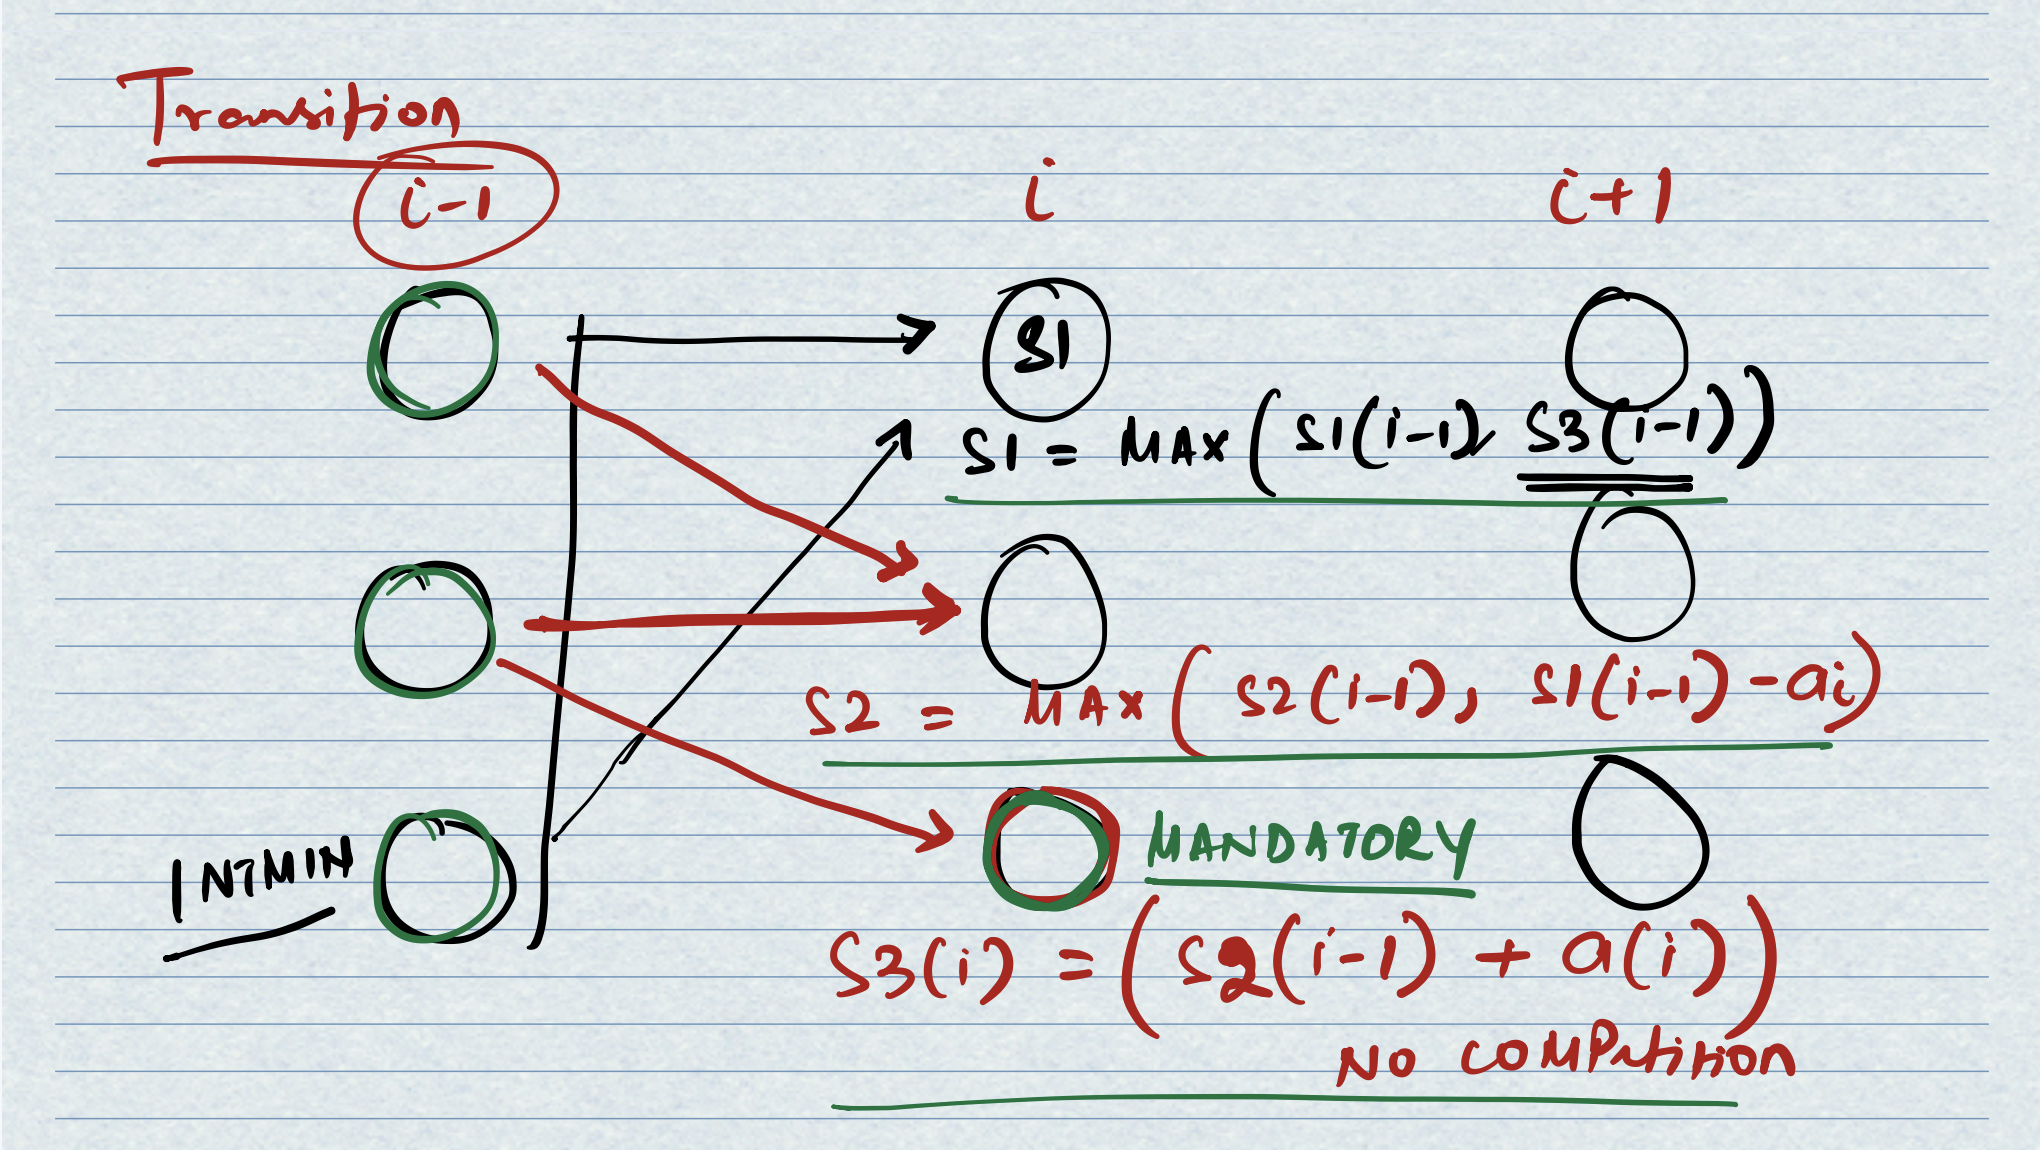 Transition
i-1 i i+1
S1
S1 = MAX(S1(i-1), S3(i-1))
S2 = MAX(S2(i-1), S1(i-1) - ai)
INTMIN
MANDATORY
S3(i) = (S2(i-1) + a(i))
NO COMPetition